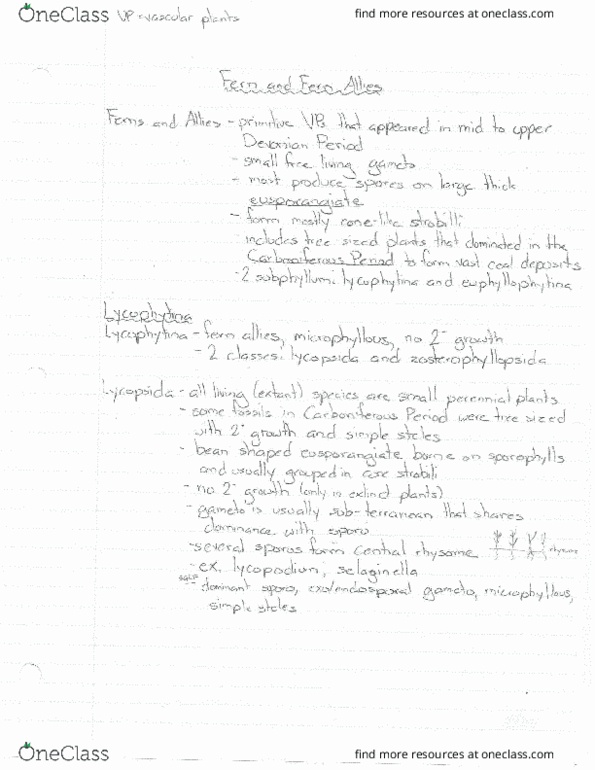 OneClass VP vascular plants
find more resources at oneclass.com
Fern and Fern Allies
Ferns and Allies - primitive VPs that appeared in mid to upper
Devonian Period
- small free living gameto
- most produce spores on large thick
eusporangiate
- form mostly cone-like strobili
includes tree sized plants that dominated in the
Carboniferous Period to form vast coal deposits
- 2 subphyllum: lycophytina and euphyllophytina
Lycophytina
Lycophytina - fern allies, microphyllous, no 2° growth
- 2 classes: lycopsida and zosterophyllopsida
Lycopsida - all living (extant) species are small perennial plants
- some fossils in Carboniferous Period were tree sized
with 2° growth and simple steles
- bean shaped eusporangiate borne on sporophylls
and usually grouped in cone strobili
- no 2° growth (only in extinct plants)
- gameto is usually sub-terranean that shares
dominance with sporo
- several sporos form central rhysome
rhysome
- ex. lycopodium, selaginella
- dominant sporo, exo/endosporal gameto, microphyllous,
simple steles
OneClass
find more resources at oneclass.com